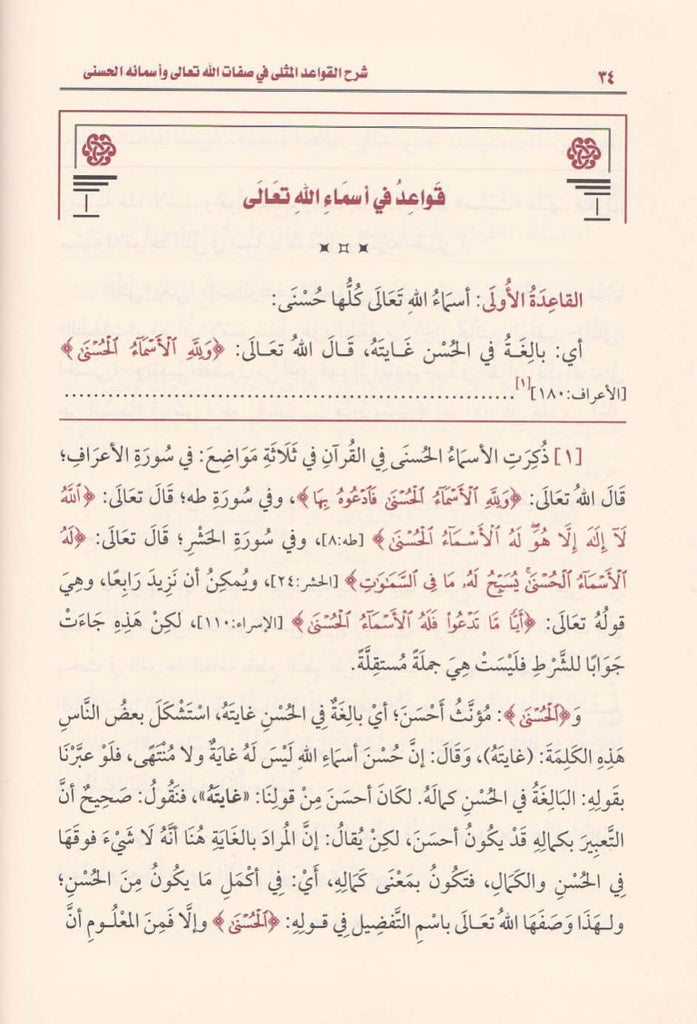 ٣٤
شرح القواعد المثلى في صفات الله تعالى وأسمائه الحسنى
قَوَاعِدُ في أسمَاءِ اللهِ تعَالَى
القاعِدَةُ الأُولَى: أسمَاءُ اللهِ تَعَالَى كُلُّها حُسْنَى:
أي: بالِغَةُ في الحُسْن غَايتَهُ، قَالَ اللهُ تعَالَى: ﴿وَلِلَّهِ ٱلْأَسْمَآءُ ٱلْحُسْنَىٰ﴾
[الأعراف:١٨٠][١]................................................................
[١] ذُكِرَتِ الأسمَاءُ الحُسنَى فِي القُرآنِ في ثَلَاثَةِ مَوَاضِعَ: في سُورَةِ الأعرَافِ؛
قَالَ اللهُ تعَالَى: ﴿وَلِلَّهِ ٱلْأَسْمَآءُ ٱلْحُسْنَىٰ فَٱدْعُوهُ بِهَا﴾، وفي سُورَةِ طه؛ قالَ تعَالَى: ﴿ٱللَّهُ
لَآ إِلَٰهَ إِلَّا هُوَۖ لَهُ ٱلْأَسْمَآءُ ٱلْحُسْنَىٰ﴾ [طه:٨]، وفي سُورَةِ الحَشْرِ؛ قَالَ تعَالَى: ﴿لَهُ
ٱلْأَسْمَآءُ ٱلْحُسْنَىٰۚ يُسَبِّحُ لَهُۥ مَا فِى ٱلسَّمَٰوَٰتِ﴾ [الحشر:٢٤]، ويُمكِنُ أن نَزِيدَ رَابِعًا، وهِيَ
قولُهُ تعَالَى: ﴿أَيًّا مَّا تَدْعُوا۟ فَلَهُ ٱلْأَسْمَآءُ ٱلْحُسْنَىٰ﴾ [الإسراء:١١٠]، لَكِنْ هَذِهِ جَاءَتْ
جَوَابًا للشَّرْطِ فلَيْسَتْ هِيَ جملَةً مُستقِلَّةً.
وَ﴿ٱلْحُسْنَىٰ﴾: مُؤنَّثُ أَحْسَنَ؛ أيْ بالِغَةٌ فِي الحُسْنِ غايتَهُ، اسْتَشْكَلَ بعضُ النَّاسِ
هَذِهِ الكَلِمَةَ: (غايتَهُ)، وَقَالَ: إنَّ حُسْنَ أسمَاءِ اللهِ لَيْسَ لَهُ غايَةٌ ولَا مُنْتَهًى، فلَوْ عبَّرْنَا
بقولِهِ: البَالِغَةُ في الحُسْنِ كمالَهُ. لكَانَ أحسَنَ مِنْ قولِنَا: «غايتَهُ»، فنَقُولُ: صَحِيحٌ أنَّ
التَّعبِيرَ بكمالِهِ قَدْ يكُونُ أحسَنَ، لكِنْ يُقالُ: إنَّ المُرادَ بالغَايَةِ هُنَا أنَّهُ لَا شَيْءَ فوقَهَا
فِي الحُسْنِ والكَمَالِ، فتَكُونُ بمَعْنَى كَمَالِهِ، أَيْ: في أكْمَلِ مَا يكُونُ مِنَ الحُسْنِ؛
ولـهَذَا وَصَفَهَا اللهُ تعَالَى باسْمِ التَّفضِيلِ فِي قولِهِ: ﴿ٱلْحُسْنَىٰ﴾ وإلَّا فَمِنَ المعْلُومِ أنَّ